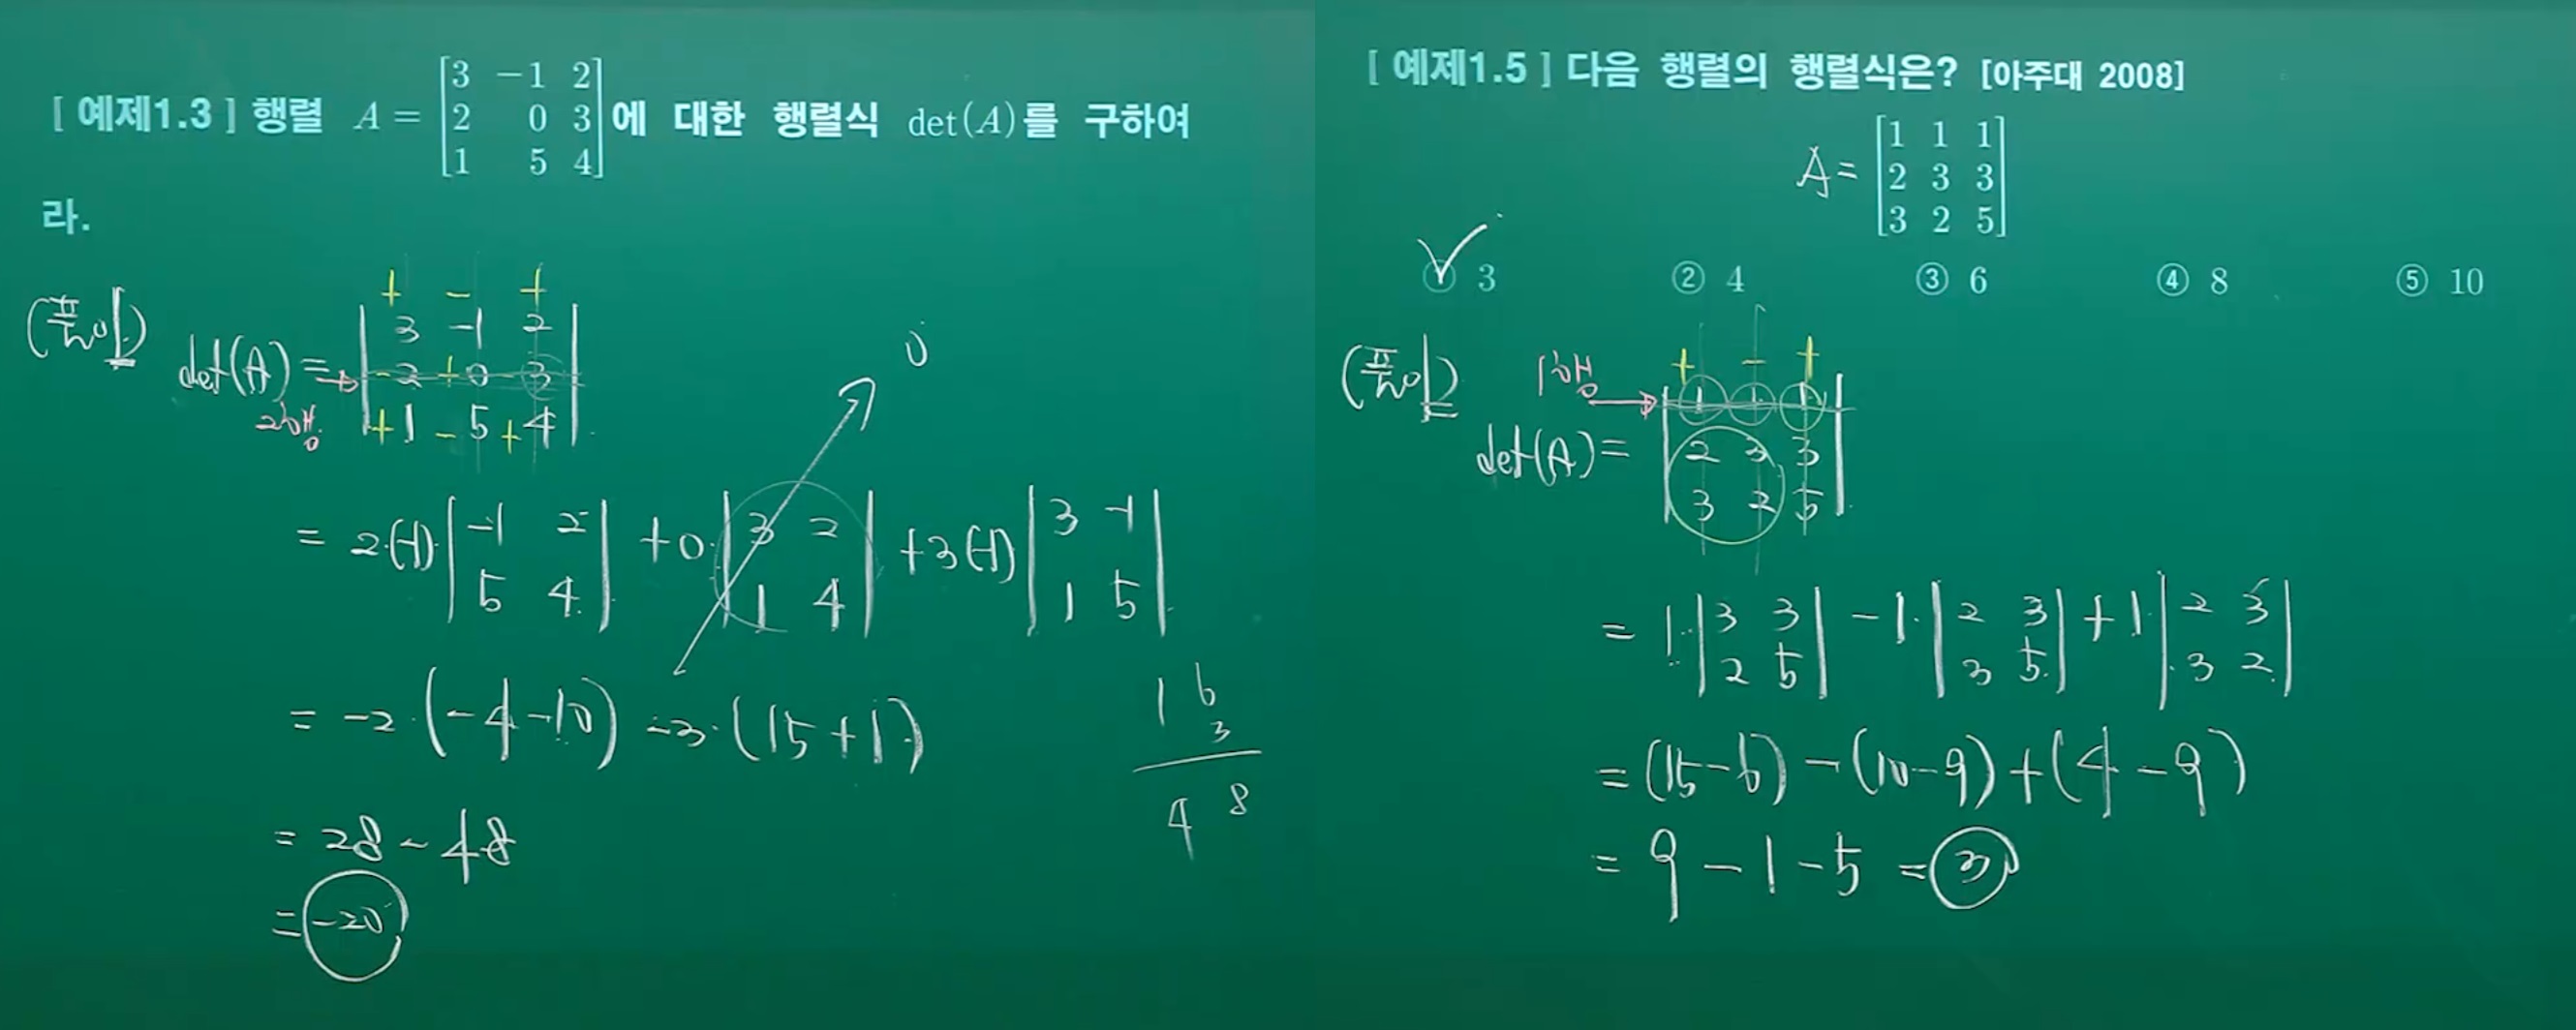 [ 예제1.3 ] 행렬 A = [3 -1 2; 2 0 3; 1 5 4] 에 대한 행렬식 det(A)를 구하여
라.
(풀이)
+ - +
det(A) = | 3 -1 2; - 2 + 0 - 3; + 1 - 5 + 4 |
2행
= 2·(-1)·| -1 2; 5 4 | + 0·| 3 2; 1 4 | + 3(-1) | 3 -1; 1 5 |
0
= -2·(-4-10) -3·(15+1)
= 28 - 48
= -20
16
3
48
[ 예제1.5 ] 다음 행렬의 행렬식은? [아주대 2008]
A = [1 1 1; 2 3 3; 3 2 5]
① 3 ② 4 ③ 6 ④ 8 ⑤ 10
(풀이)
1행
+ - +
det(A) = | 1 1 1; 2 3 3; 3 2 5 |
= 1·| 3 3; 2 5 | - 1·| 2 3; 3 5 | + 1·| 2 3; 3 2 |
= (15-6) - (10-9) + (4-9)
= 9 - 1 - 5 = 3